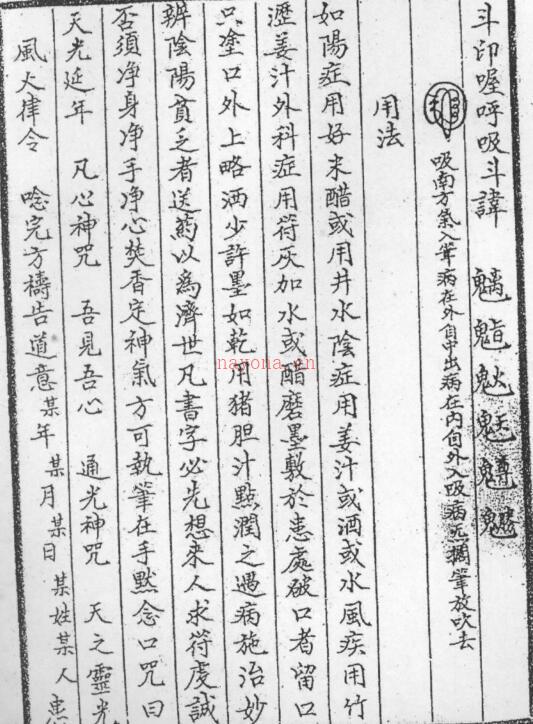 斗印喔呼吸斗諱
吸南方氣入筆病在外自中出病在内自外入吸病完擱筆放吹去
用法
如陽症用好米醋或用井水陰症用姜汁或酒或水風疾用竹
瀝姜汁外科症用符灰加水或酯磨墨敷於患處破口者留口
只塗口外上略洒少許墨如乾用猪胆汁點潤之遇病施治妙
辨陰陽貧乏者送药以為濟世凡書字必先想来人求符虔誠
否須净身净手净心焚香定神氣方可執筆在手默念口咒曰
天光延年 凡心神咒 吾見吾心 通光神咒 天之靈光
風火律令 唸完方禱告道意某年某月某日某姓某人患
nayona.cn